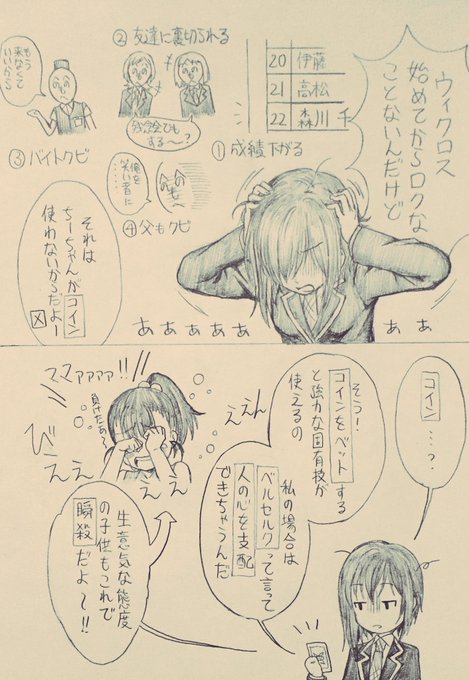 ウィクロス
始めてからロクな
ことないんだけど
20 伊藤
21 高松
22 森川 千
① 成績下がる
② 友達に裏切られる
残念会でも
する〜?
③ バイトクビ
もう
来なくて
いいから
④ 父もクビ
俺を
笑い者に
……
あぁぁぁぁ
ぁぁ
それは
ちーちゃんがコイン
使わないからだよー
コイン…?
そう!
コインをベットする
と強力な固有技が
使えるの
私の場合は
ベルセルクって言って
人の心を支配
できちゃうんだ
生意気な態度
の子供もこれで
瞬殺だよ〜!!
ママァァァァ!!
負けたぁ〜
びえぇぇぇ
ええん